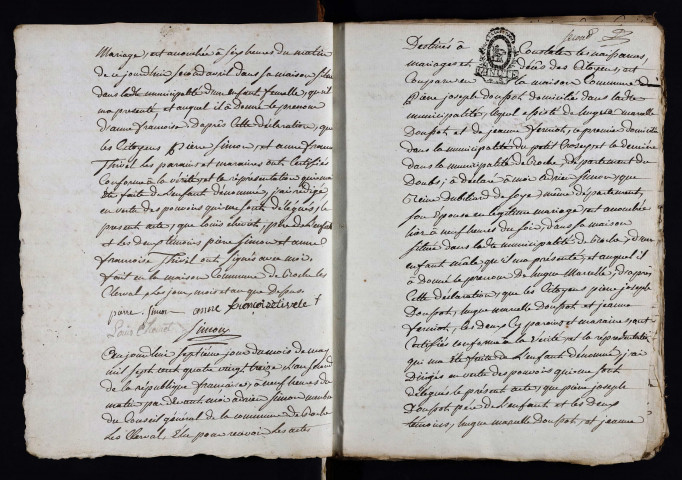 Mariage, est accouchée à six heures du matin
de ce jourdhui second avril dans sa maison située
dans ladte municipalité d'un enfant femelle, qu'il
m'a présenté, et auquel il a donné le prenom
d'anne francoise d'après cette déclaration, que
les Citoyens pière Simon, et anne francoise
Thivel les parains et maraines ont certifiés
Conforme à la vérité et la représentation qui m'a
été faite de l'enfant dénommé, j'ai rédigé
en vertu des pouvoirs qui me sont délegués, le
present acte, que Louis père de l'enfant
et les deux temoins pière Simon et anne
francoise Thivel ont signés avec moi.
fait en la maison Commune de Roche les
Clerval, les jour, mois et an que dessus
piere simon anne francoise
Louis
Simon
aujourdhui septième jour du mois de may
mil sept cent quatre vingt treize l'an second
de la république francaise, à neuf heures du
matin par devant moi adrien Simon membre
du Conseil général de la commune de Roche
Les Clerval élu pour recevoir les actes
Destinés à Constater les naissances,
mariages et décès des Citoyens, est
Comparu en la maison Commune
Pière joseph Doussot domicilié dans ladte
municipalité, lequel assisté de hugue marelle
Doussot et de jeanne le premier domicilié
dans la municipalité du petit et la dernière
dans la municipalité de roche, département du
Doubs; à déclaré à moi adrien Simon, que
Reine de Soye même département,
son épouse en légitime mariage, est accouchée
hier à neuf heures du soir, dans sa maison
située dans ladte municipalité de roche, d'un
enfant mâle qu'il m'a présenté, et auquel il
à donné le prenom de hugue marelle, d'après
Cette déclaration, que les Citoyens pière joseph
Doussot, hugue marelle doussot, et jeanne
les deux parains et maraine, ont
Certifiés conforme à la vérité et la représentation
qui m'a été faite de l'enfant dénommé, j'ai
Dirigés en vertu des pouvoirs qui me sont
délegués le présent acte, que pière joseph
Doussot père de l'enfant et les deux
temoins, hugue marelle doussot, et jeanne